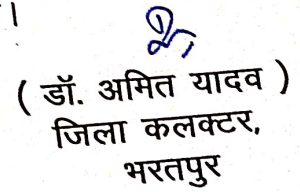 ( डॉ. अमित यादव )
जिला कलक्टर,
भरतपुर